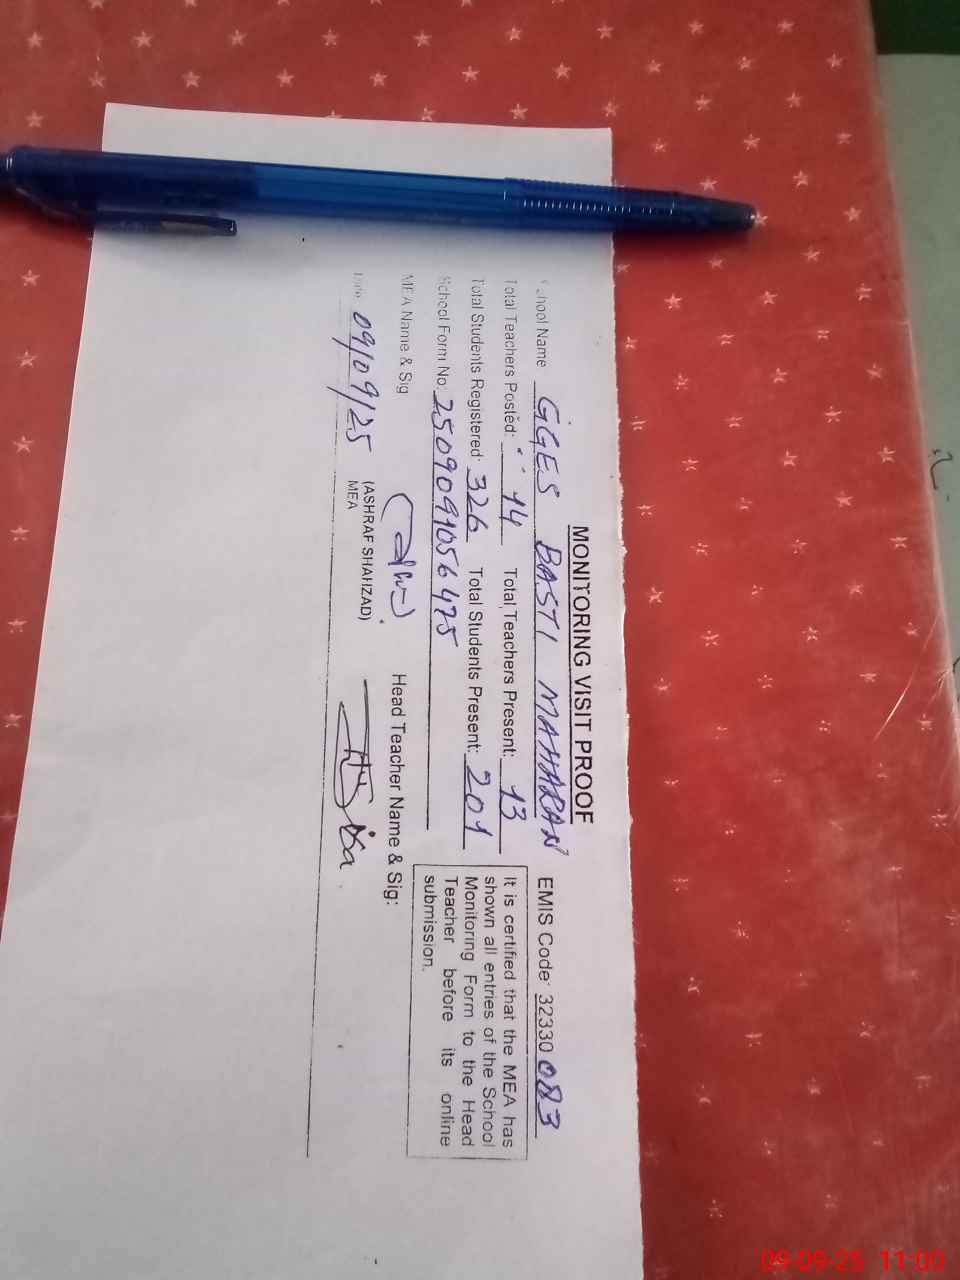 MONITORING VISIT PROOF
School Name GGES BASTI MAHARAN EMIS Code: 32330083
Total Teachers Posted: 14 Total Teachers Present: 13
Total Students Registered: 326 Total Students Present: 201
School Form No: 2509091056475
It is certified that the MEA has
shown all entries of the School
Monitoring Form to the Head
Teacher before its online
submission.
MEA Name & Sig Head Teacher Name & Sig:
(ASHRAF SHAHZAD)
MEA
Date: 09/09/25
09-09-25 11:00